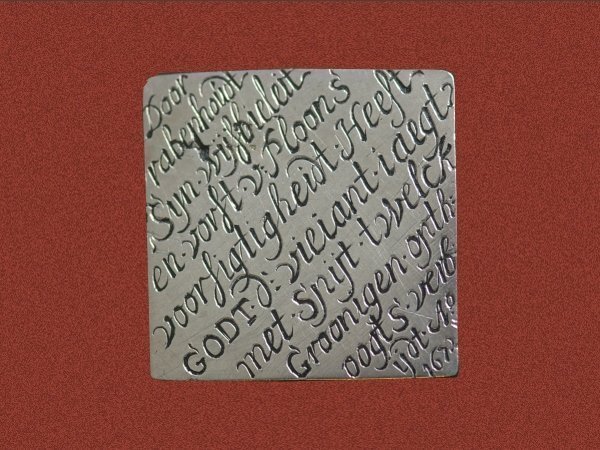 Door
rabenhoudt
Syn wijsbeleit
en vorst v: Floons
voorsigtigheidt Heeft
GODT d: vieiant iaegt
met Spijt t welck
Groonigen onth:
oogt S verb
ijdt Ao
167